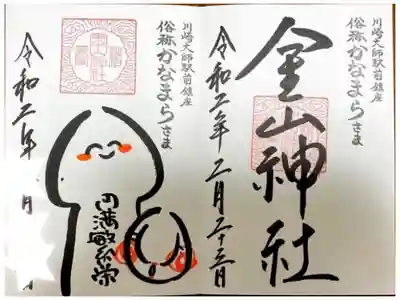 川崎大師駅前鎮座
俗称かなまらさま
金山神社
令和二年二月二十三日
川崎大師駅前鎮座
俗称かなまらさま
円満繁栄
令和二年 月